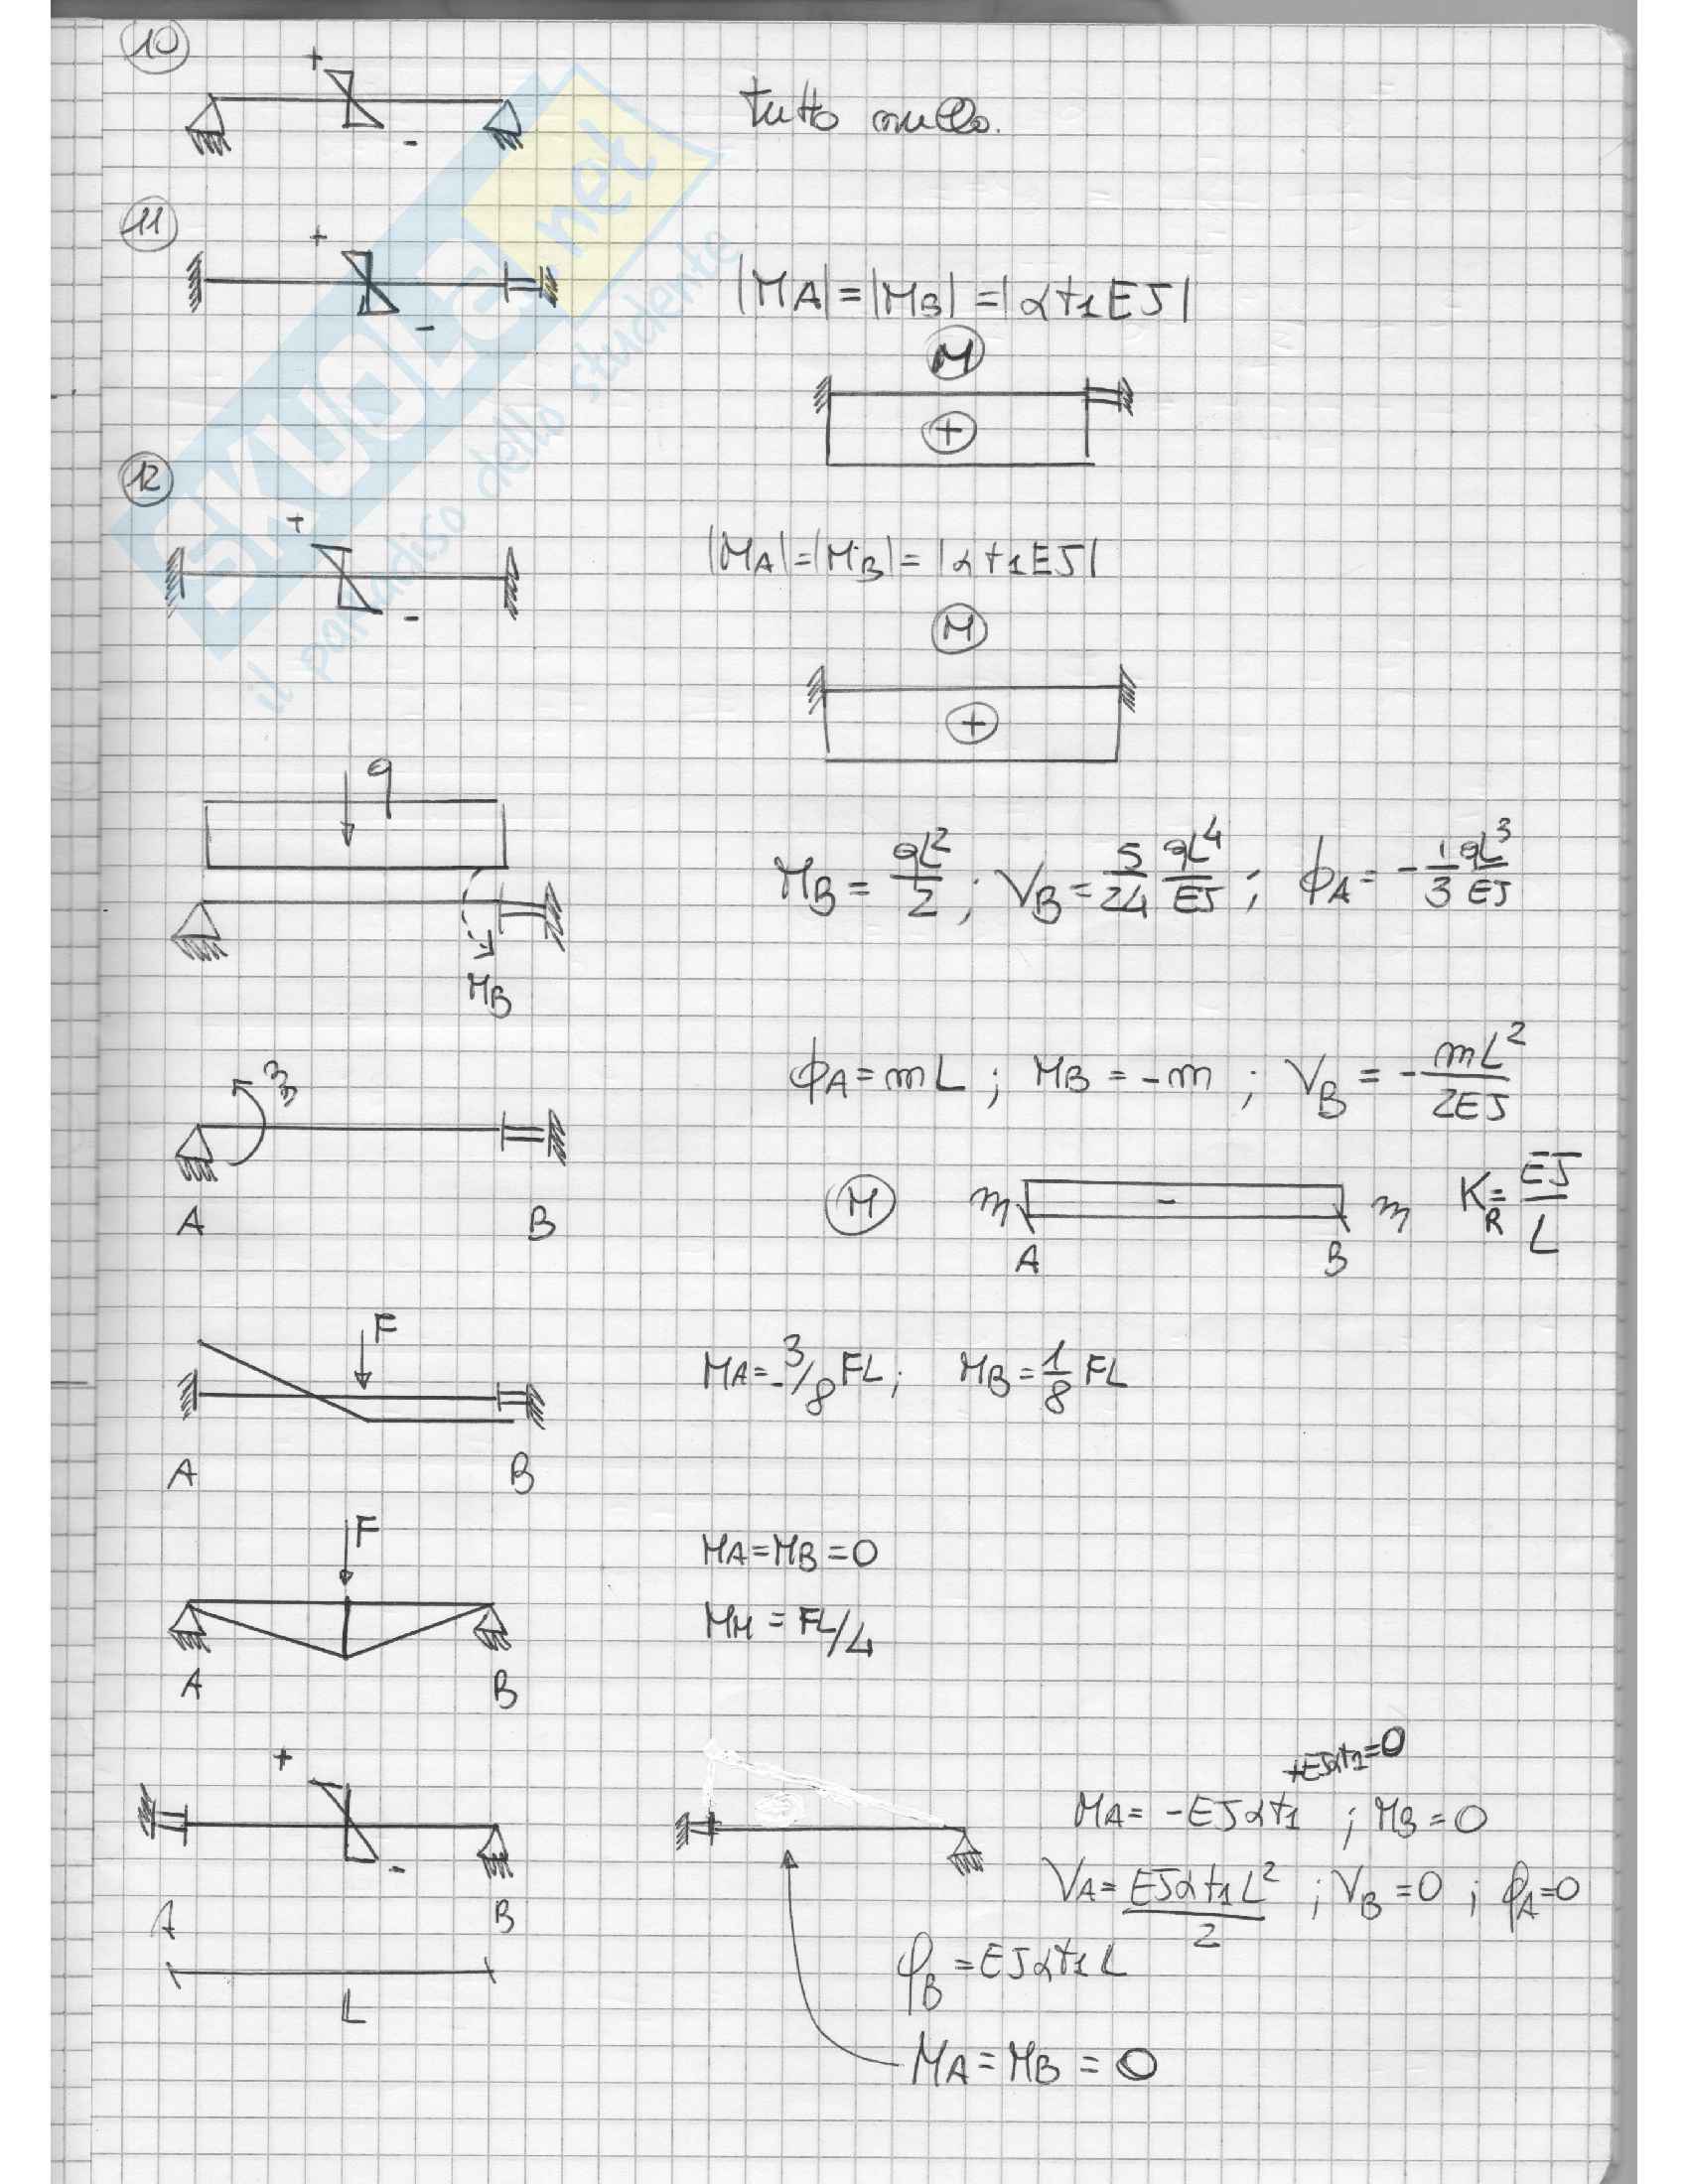 10
+
-
tutto nullo.
11
+
-
|MA|=|MB|=|αt1EJ|
M
+
12
+
-
|MA|=|MB|=|αt1EJ|
M
+
q
MB
MB = qL²/2 ; VB = 5/24 qL⁴/EJ ; ϕA = -1/3 qL³/EJ
m
A B
ϕA = mL ; MB = -m ; VB = -mL²/2EJ
M m - m KR = EJ/L
A B
F
A B
MA = -3/8 FL ; MB = 1/8 FL
F
A B
MA = MB = 0
MM = FL/4
+
-
A B
L
+EJαt1=0
MA = -EJαt1 ; MB = 0
VA = EJαt1L²/2 ; VB = 0 ; φA = 0
φB = EJαt1L
MA = MB = 0
SKUOLA.net
il paradiso dello studente